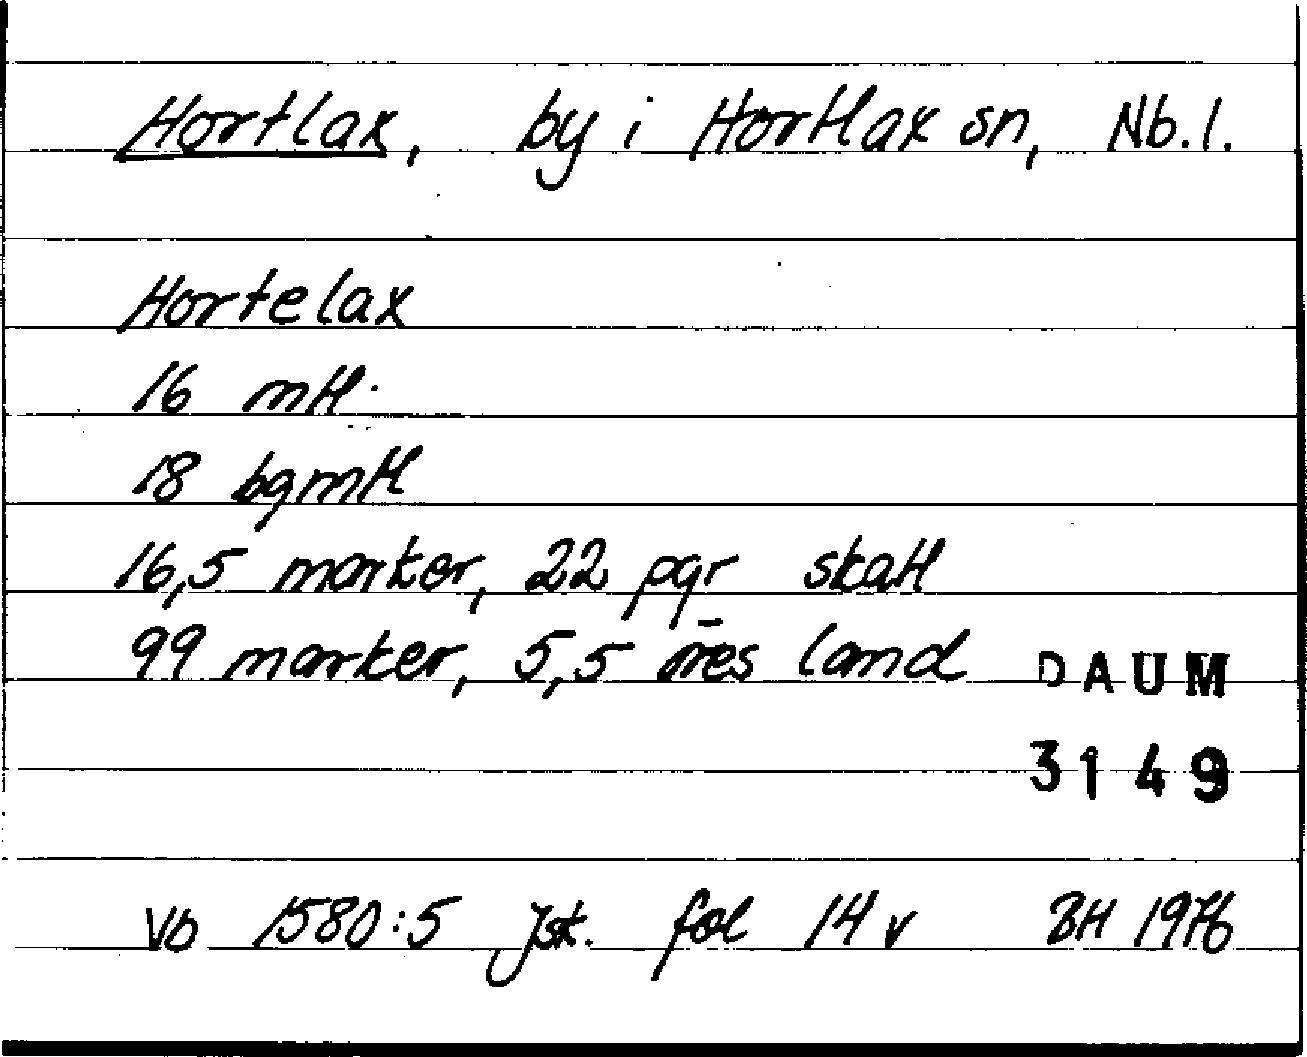 Hortlax, by i Hortlax sn, Nb.l.
Hortelax
16 mtl.
18 bgmtl
16,5 marker, 22 pgr skatt
99 marker, 5,5 öres land
DAUM
3149
Vb 1580:5 Jsk. fol 14 v BH 1976